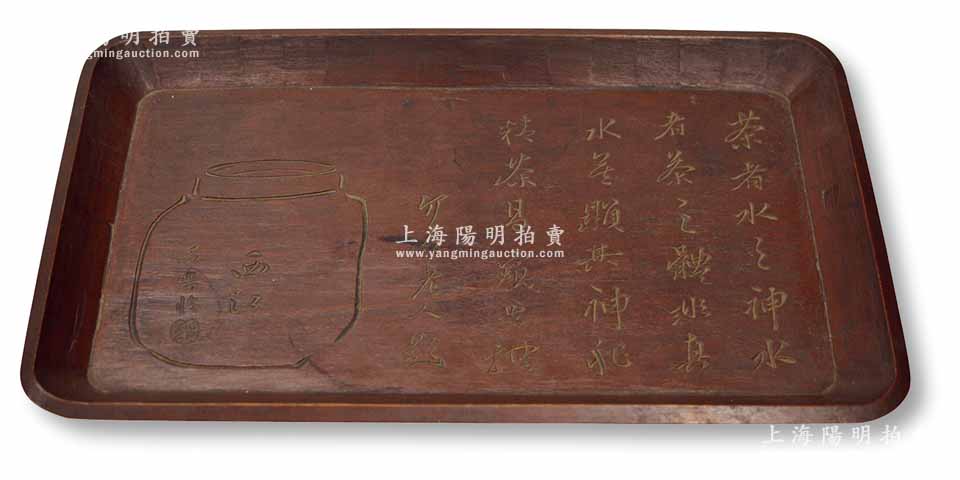 茶者水之神水
者茶之體非真
水莫顯其神非
精茶曷窺其體
老人題
上海陽明拍賣
www.yangmingauction.com
陽明拍賣
yangmingauction.com
上海陽明拍